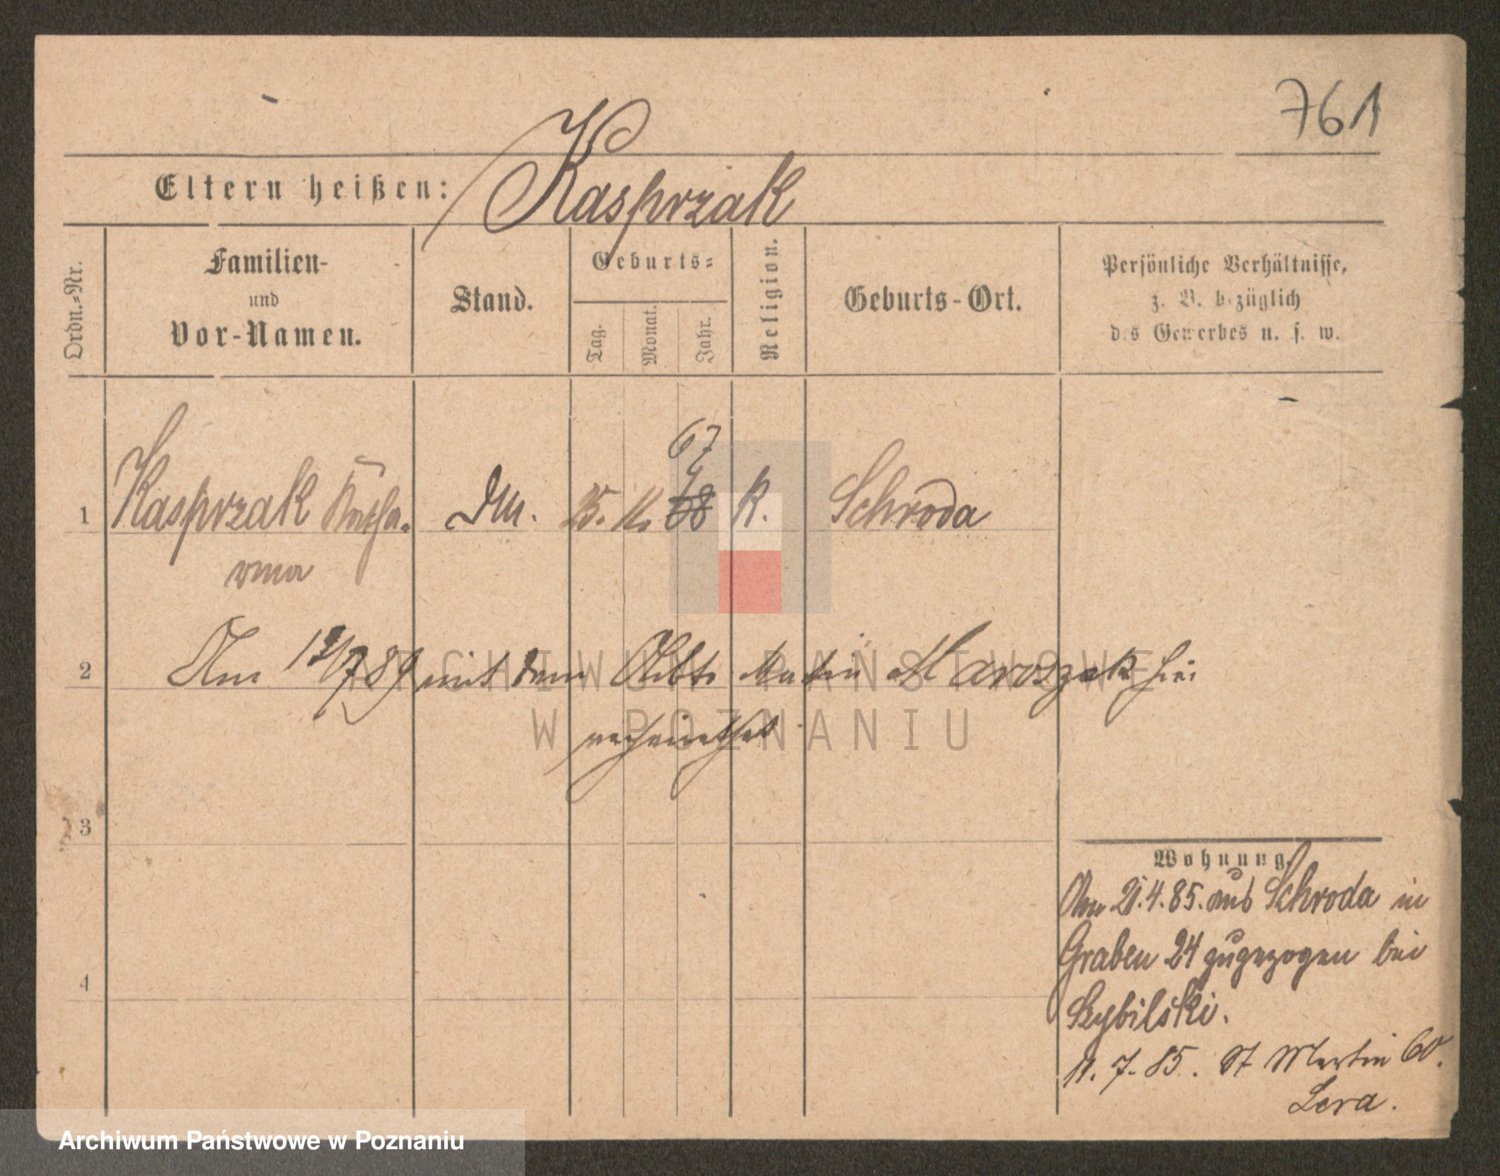 761
Eltern heißen: Kasprzak
Ordn.=Nr.
Familien-
und
Vor-Namen.
Stand.
Geburts=
Tag.
Monat.
Jahr.
Religion.
Geburts-Ort.
Persönliche Verhältnisse,
z. B. bezüglich
des Gewerbes u. s. w.
67
1 Kasprzak Katha- Dm. 25. 11. 68 K. Schroda
rina
2 Am 7 89 mit dem Martin Maroszek hier
verheirathet
3
4
Wohnung.
Am 21.4.85. aus Schroda in
Graben 24 zugezogen bei
Szybilski.
11. 7. 85. St Martin 60.
ARCHIWUM PAŃSTWOWE
W POZNANIU
Archiwum Państwowe w Poznaniu